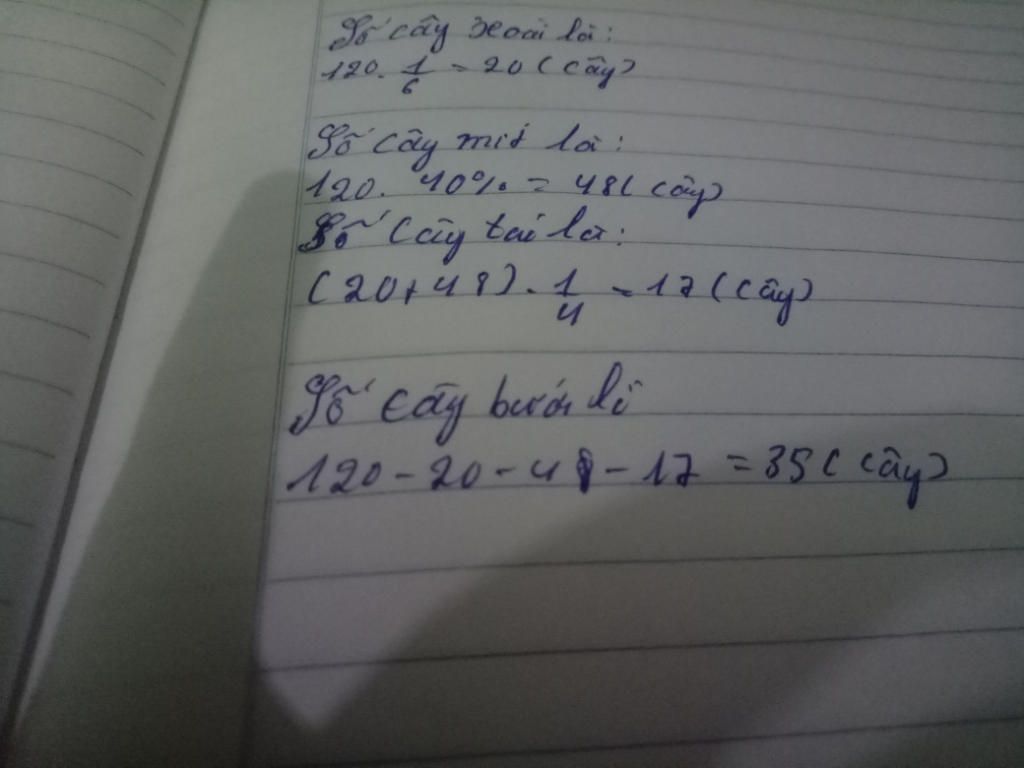 Số cây xoài là:
120. 1/6 = 20 (cây)
Số cây mít là:
120. 40% = 48 (cây)
Số cây táo là:
(20+48). 1/4 = 17 (cây)
Số cây bưởi là
120-20-48-17 = 35 (cây)